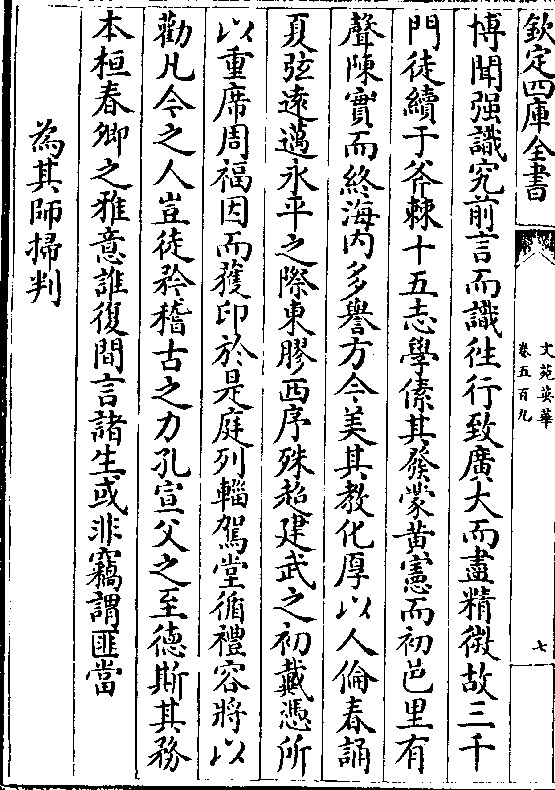 欽定四庫全書
文苑英華
卷五百九
七
博聞强識究前言而識徃行致廣大而盡精微故三千
門徒續于斧棘十五志學傃其發蒙黄憲而初邑里有
聲陳實而終海内多譽方今美其教化厚以人倫春誦
夏弦遠邁永平之際東膠西序殊超建武之初戴憑所
以重席周福因而獲印於是庭列輜駕堂循禮容將以
勸凡今之人豈徒矜稽古之力孔宣父之至德斯其務
本桓春卿之雅意誰復間言諸生或非竊謂匪當
為其師掃判